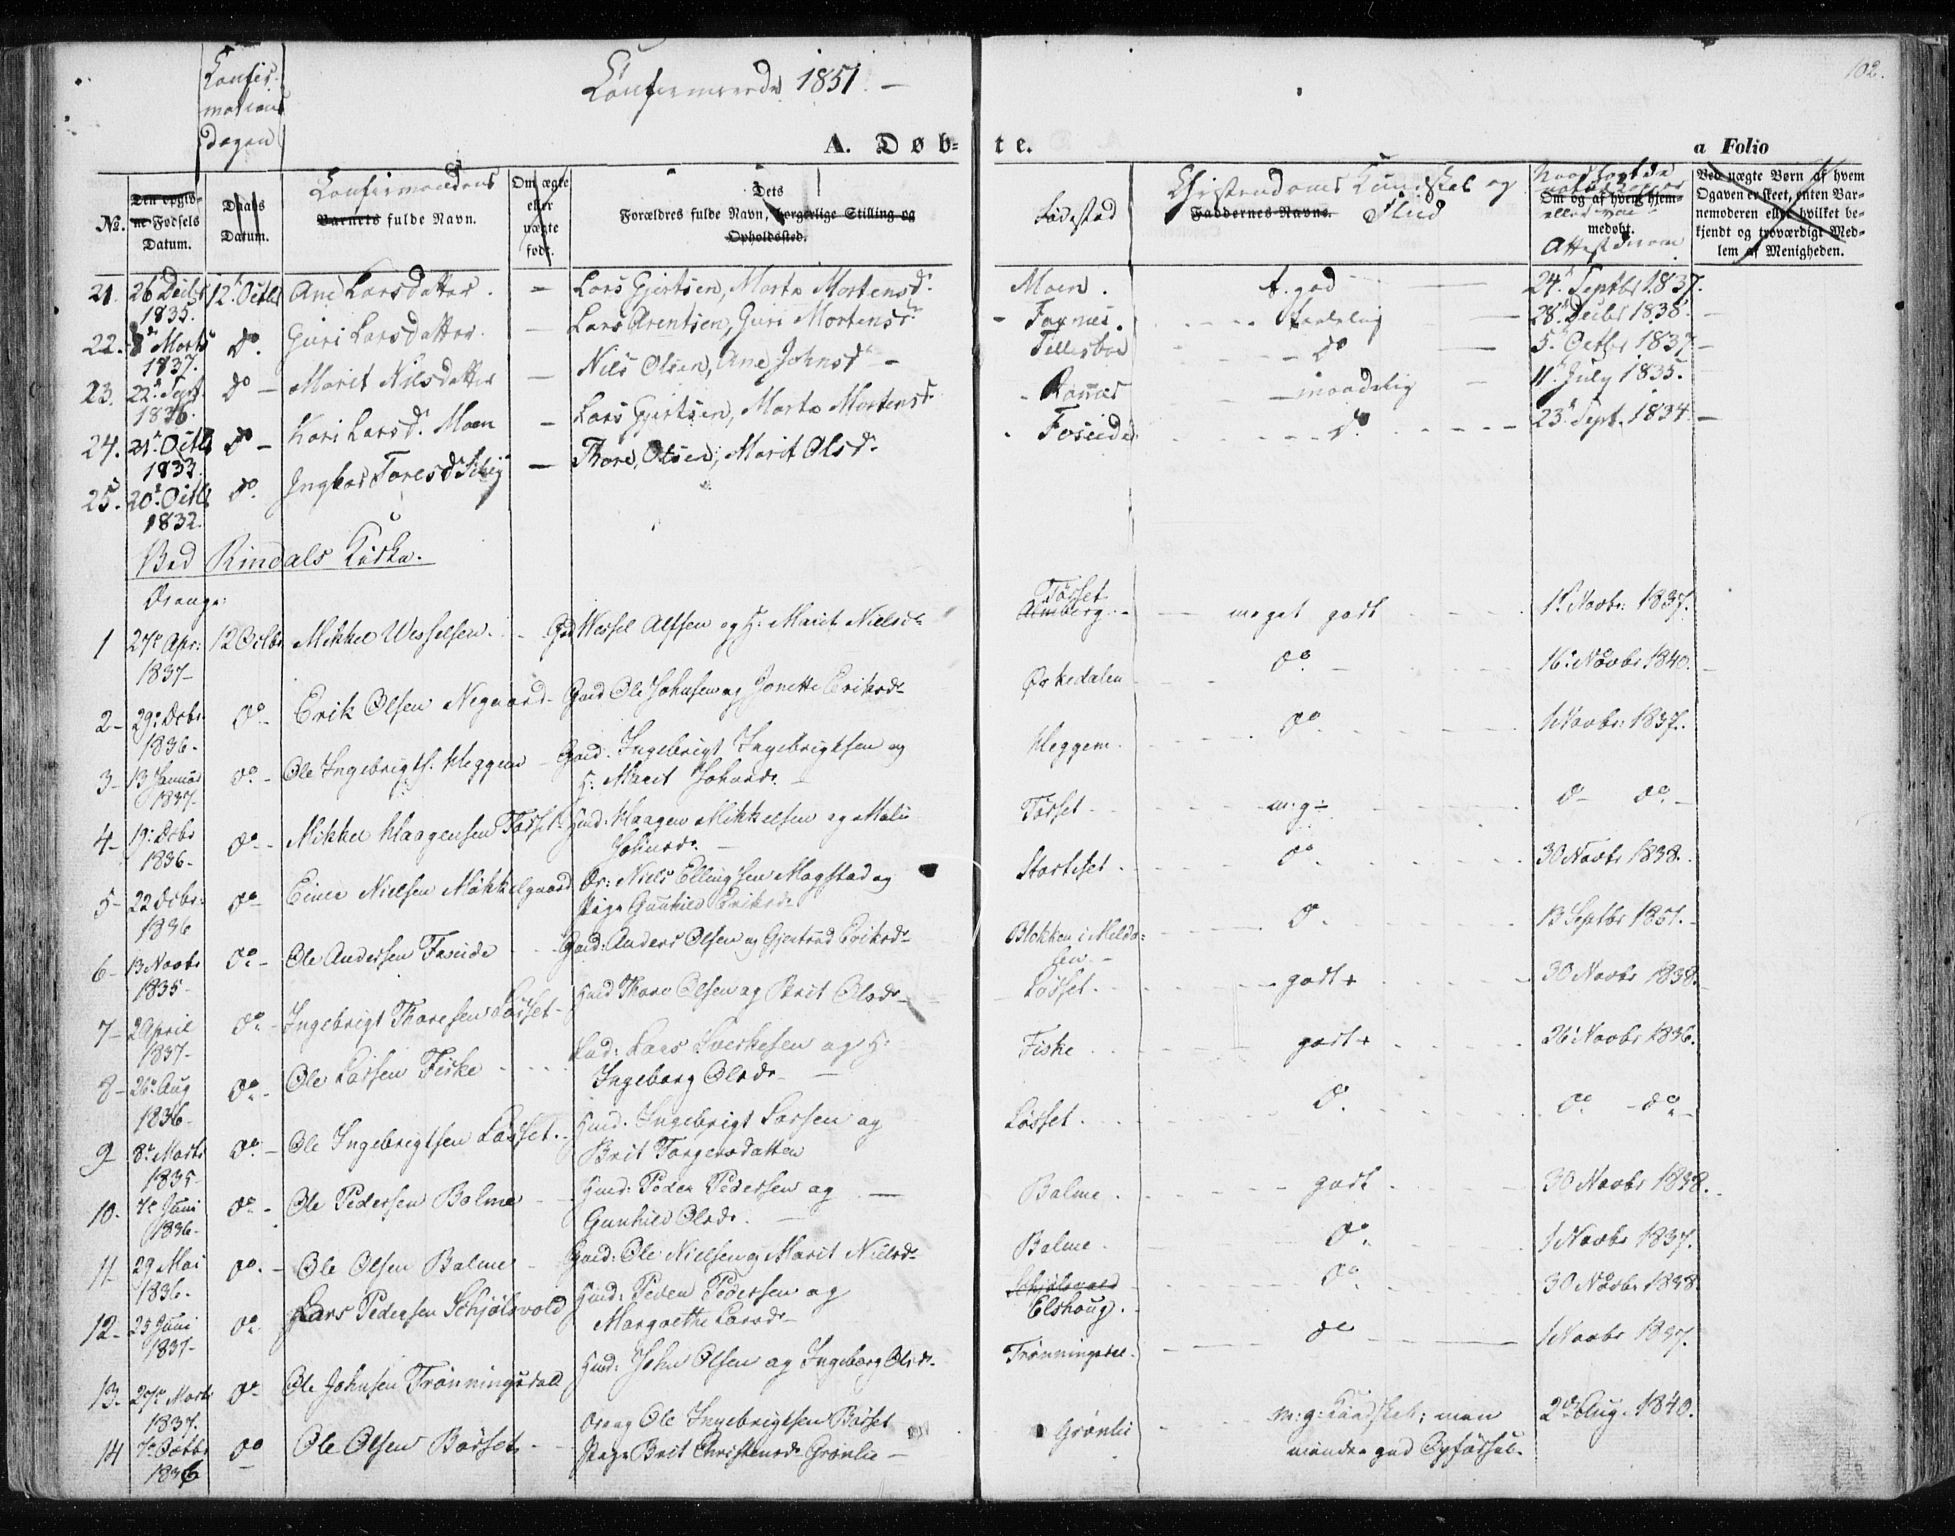 Confirmerede 1851. —
102.
Confir-
mations
dagen
A. Døb-
te.
a Folio
No.
Den opgiv-
ne Fødsels
Datum.
Daabs
Datum.
Confirmandens
Barnets fulde Navn.
Om ægte
eller
uægte
født.
Dets
Forældres fulde Navn, borgerlige Stilling og
Opholdssted.
Fødested
Christendoms Kundskab og
Faddernes Navne. Flid
Om og af hvem hjem-
medøbt.
Attesterne
Ved uægte Børn af hvem
Opgaven er skeet, enten Bar-
nemoderen eller hvilket be-
kjendt og troværdigt Med-
lem af Menigheden.
21. 26 Decbr 1835. 12. Octbr Ane Larsdatter. — Lars Gjertsen, Marte Mortensd. Moen. t. god — 24. Septbr 1837.
22. Marts 1837. do. Guri Larsdatter. — Lars Arentsen, Guri Mortensd. Foxnes. 28. Decbr 1838. —
23. 22. Sept. 1836. do — Marit Nilsdatter — Nils Olsen, Ane Johnsd — Tillesboe do 5. Octbr 1837 —
24. 21. Octbr 1833. do — Kari Larsd. Moen — Lars Gjertsen, Marte Mortensd. maadelig — 11. July 1835.
25. 20. Octbr 1832. do. Ingebor Toresd — Thore Olsen, Marit Olsd. Foseide do. 23. Sept. 1834. —
Ved Rindals Kirke.
Drenge:
1 27. Apr: 1837 — 12 Octbr Mikkel Wesselsen. Grd Wessel Alfsen og H: Marit Nielsdr Tørset Almberg — meget godt 1. Novbr: 1837.
2 — 29. Dcbr. 1836 — do — Erik Olsen Negaard — Gaard Ole Johnsen og Jonette Eriksdr Orkedalen do — 16. Novbr 1840.
3 — 13 Januar 1837 — do — Ole Ingebrigts. Heggem — Gaard. Ingebrigt Ingebrigtsen og
H: Marit Johnsdr. — Heggem. do 1 Novbr: 1837.
4 — 19. Dcbr 1836 — do — Mikkel Haagensen Tørset — Hmd: Haagen Mikkelsen og Mali
Johnsdr. — Tørset — m: g÷ do — do —
5 — 22 Dcbr: 1836 do — Einer Nielsen Møkkelgaard Dr: Niels Ellingsen Magstad og
Pige Gunhild Eriksdr Storteset. do. 30 Novbr 1838.
6 — 13 Novbr 1835 — do — Ole Andersen Foseide Gaard: Anders Olsen og Gjertrud Eriksdr Blokken i Melda-
len — do. 13 Septbr 1851. —
7 — 2 April 1837 — do — Ingebrigt Thoresen Løsset — Hmd Thore Olsen og Brit Olsdr — Løsset. godt + 30 Novbr 1838.
8 — 26. Aug 1836 — do — Ole Larsen Fiske Lars Sverkesen og H:
Ingeborg Olsdr — Fiske godt + 26. Novbr 1836.
9 — 8. Marts 1835 — do — Ole Ingebrigtsen Løsset. Hmd. Ingebrigt Larsen og
Brit Torgersdatter Løsset. do. do — do —
10. 7. Juni 1836 — do — Ole Pedersen Bolme — Hmd: Peder Pedersen og —
Gunhild Olsdr. — Bolme. godt. 30 Novbr 1838.
11 — 29 Mai 1836 — do. — Ole Olsen Bolme — Gaard: Ole Nielsen og Marit Nielsdr Bolme. do. 1 Novbr 1837.
12 — 25 Juni 1837 — do. Lars Pedersen Schjølsvold Hmd: Peder Pedersen og
Margrethe Larsdr — Schjølsvold
Elshoug. do 30 Novbr 1838
13. 27. Marts 1837. do — Ole Johnsen Trønningsdall Hmd: John Olsen og Ingeborg Olsdr. Trønningsdal. do — 1 Novbr 1837.
14 7. Octbr 1836 do — Ole Olsen Børset — Dreng Ole Ingebrigtsen Børset
Pige Brit Christensdr Grønlie — Grønlie m: g: Kundskab; men
mindre god Opførsel. 2 Aug. 1840.